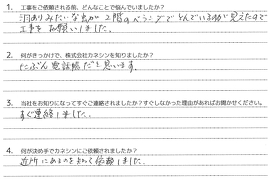 1. 工事をご依頼される前、どんなことで悩んでいましたか?
羽ありみたいな虫が2階のベランダでとんでいるのが見えたので
工事をお願いしました。
2. 何がきっかけで、株式会社カネシンを知りましたか?
たぶん電話帳だと思います。
3. 当社をお知りになってすぐご連絡されましたか?すぐしなかった理由があればお聞かせください。
すぐ連絡しました。
4. 何が決め手でカネシンにご依頼されましたか?
近所にあるのを知り依頼しました。